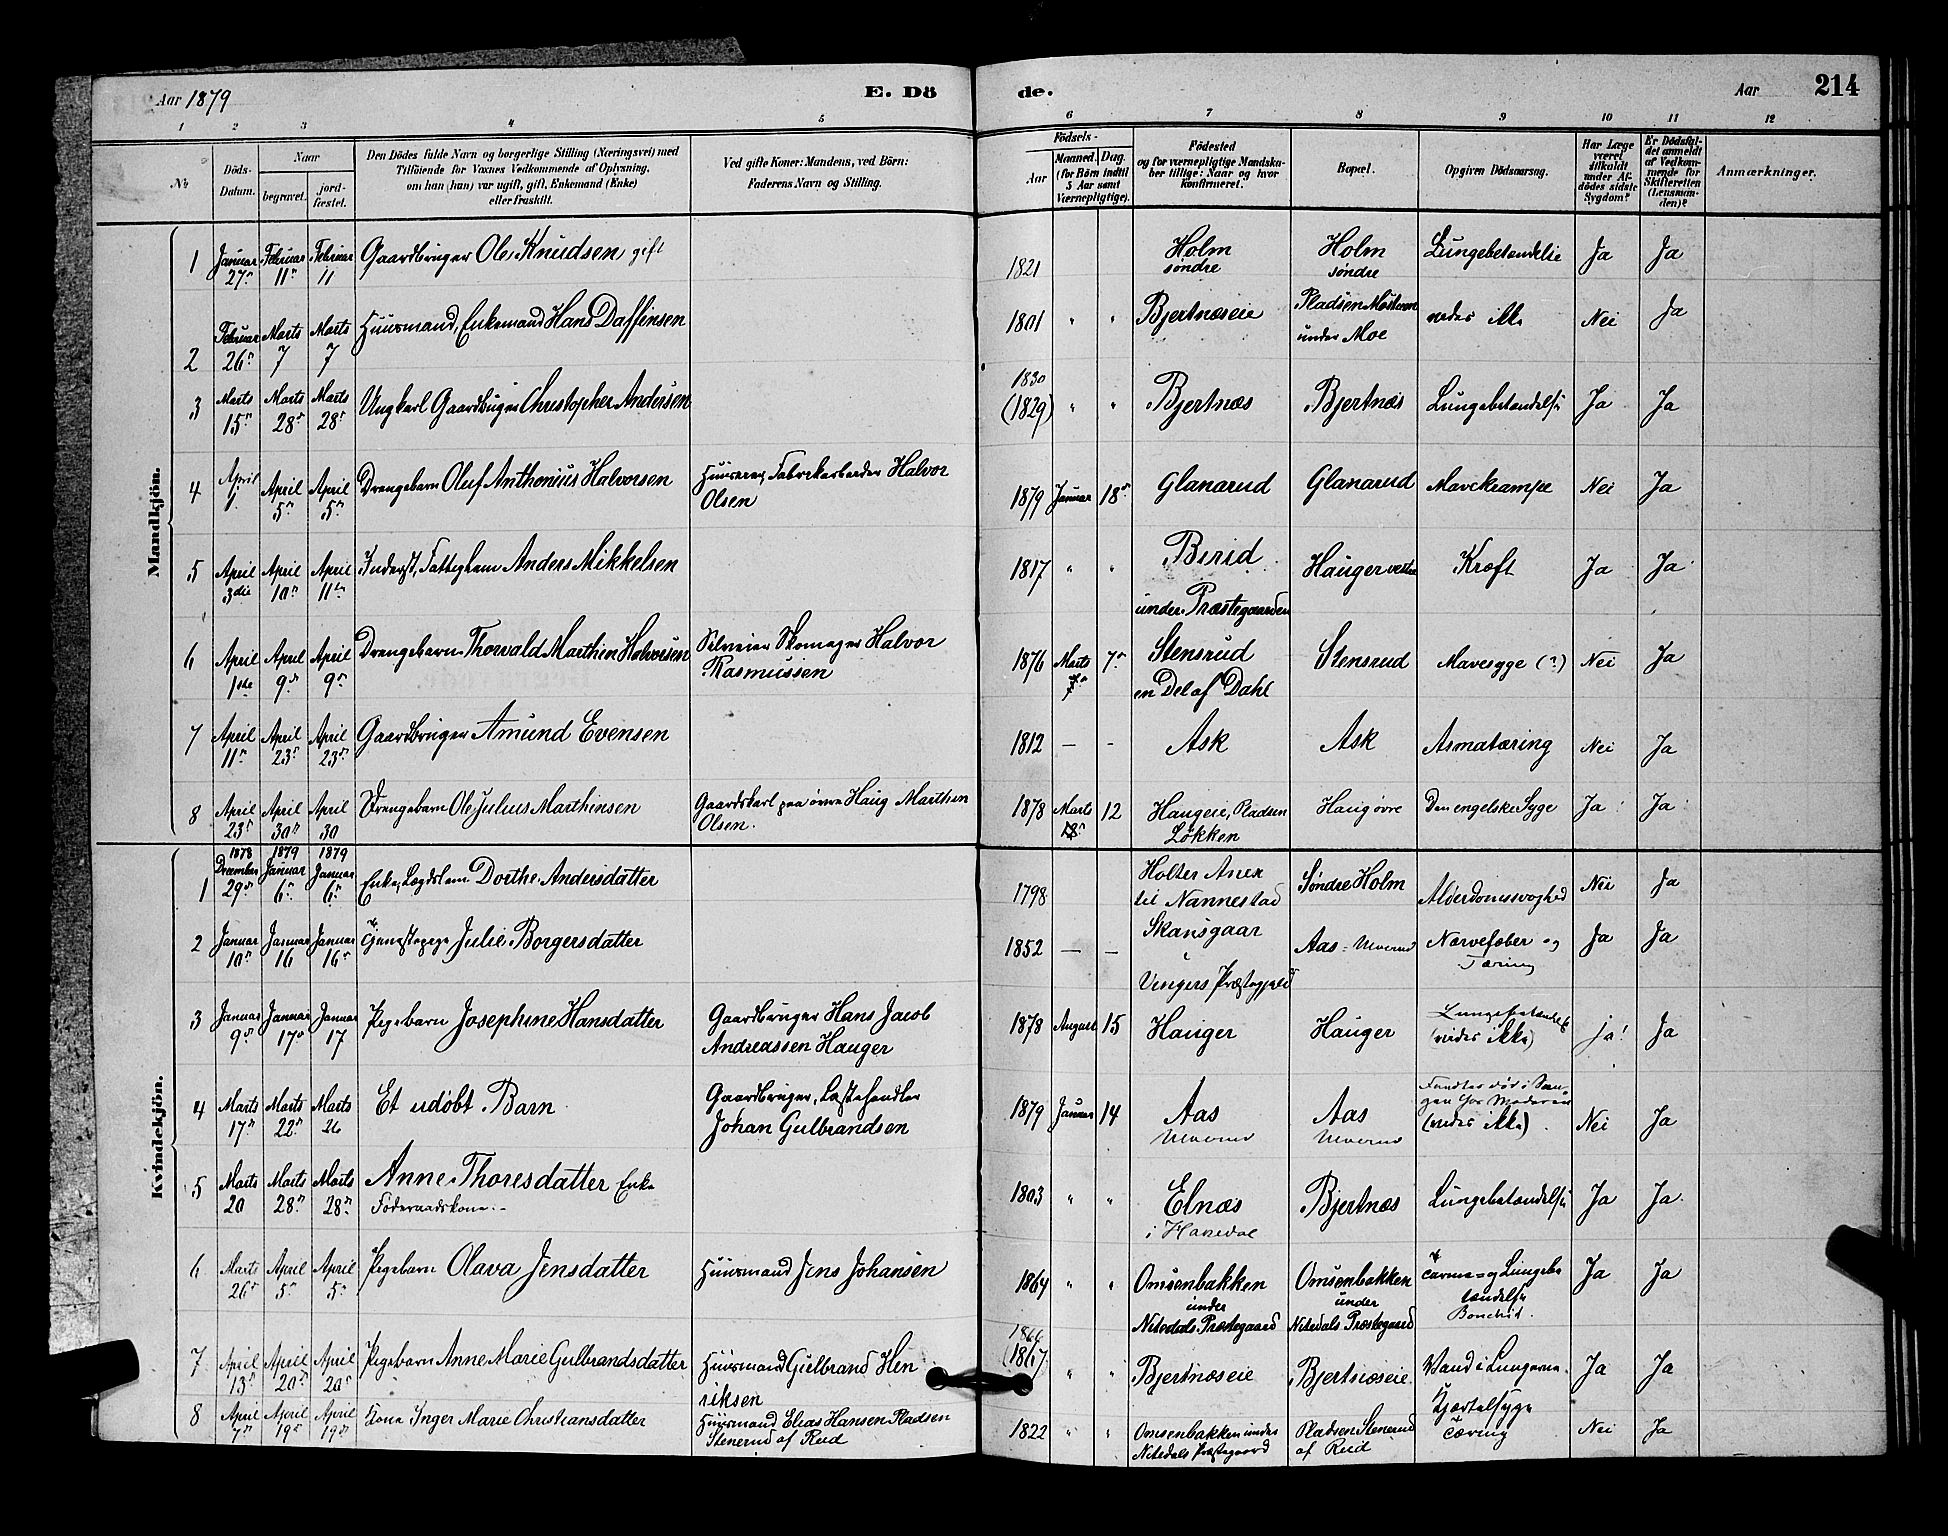 Aar 1879
E. Dö
de.
Aar
214
1 2 3 4 5 6 7 8 9 10 11 12
No
Döds-
Datum.
Naar
begravet.
jord-
fæstet.
Den Dödes fulde Navn og borgerlige Stilling (Næringsvei) med
Tilföiende for Voxnes Vedkommende af Oplysning,
om han (hun) var ugift, gift, Enkemand (Enke)
eller fraskilt.
Ved gifte Koner: Mandens, ved Börn:
Faderens Navn og Stilling.
Födsels-
Aar
Maaned. Dag.
(for Börn indtil
5 Aar samt
Værnepligtige).
Födested
og for værnepligtige Mandska-
ber tillige: Naar og hvor
konfirmeret.
Bopæl.
Opgiven Dödsaarsag.
Har Læge
været
tilkaldt
under Af-
dödes sidste
Sygdom?
Er Dödsfal-
det anmeldt
af Vedkom-
mende for
Skifteretten
(Lensman-
den)?
Anmærkninger.
Mandkjön.
1 Januar 27de Februar 11te Februar 11 Gaardbruger Ole Knudsen gift 1821 Holm søndre Holm søndre Lungebetændelse Ja Ja
2 Februar 26de Marts 7 Marts 7 Huusmand, Enkemand Hans Daffinsen 1801 " " Bjertnæseie Pladsen under Moe vides ikke Nei Ja
3 Marts 15de Marts 28de Marts 28de Ungkarl Gaardbruger Christopher Andersen 1830 (1829) " " Bjertnæs Bjertnæs Lungebetændelse Ja Ja
4 April April 5te April 5te Drengebarn Oluf Anthonius Halvorsen Fabrikarbeider Halvor Olsen 1879 Januar 18de Glanarud Glanarud Mavekrampe Nei Ja
5 April 3die April 10de April 11te Inderst, Fattiglem Anders Mikkelsen 1817 " " Birid Hauger vestre Kræft Ja Ja
6 April 1ste April 9de April 9de Drengebarn Thorvald Marthin Halvorsen Selveier Skomager Halvor Rasmussen 1876 Marts 7de under Præstegaarden Stensrud en Del af Dahl Stensrud Mavesyge (?) Nei Ja
7 April 11te April 23de April 23de Gaardbruger Amund Evensen 1812 — - Ask Ask Asmatæring Nei Ja
8 April 23de April 30te April 30 Drengebarn Ole Julius Marthinsen Gaardskarl paa øvre Haug Marthin Olsen. 1878 Marts 12 Haugeie, Pladsen Løkken Haug øvre Den engelske Syge Ja Ja
Kvindekjön.
1 1878 December 29de 1879 Januar 6te 1879 Januar 6te Enke, Lægdslem Dorthe Andersdatter 1798 Holter Anex til Nannestad Søndre Holm Alderdomssvaghed Nei Ja
2 Januar 10de Januar 16 Januar 16de Tjenestepige Julie Borgersdatter 1852 — — Skansgaar i Vingers Præstegjeld Aas - Nervefeber og Tæring Ja Ja
3 Januar 9de Januar 17de Januar 17 Pigebarn Josephine Hansdatter Gaardbruger Hans Jacob Andreassen Hauger 1878 August 15 Hauger Hauger Lungebetændelse (vides ikke) ja! Ja
4 Marts 17de Marts 22de Marts 26 Et udøbt Barn Gaardbruger, Læstehandler Johan Gulbrandsen 1879 Januar 14 Aas Aas Fandtes død i Sengen hos Moderen (vides ikke). Nei Ja
5 Marts 20 Marts 28de Marts 28de Anne Thoresdatter Enke Føderaadskone 1803 " " Elnæs i Hakedal Bjertnæs Lungebetændelse Ja Ja
6 Marts 26de April 5te April 5te Pigebarn Olava Jensdatter Huusmand Jens Johansen 1864 " " Omsenbakken under Nitedals Præstegaard Omsenbakken under Nitedals Præstegaard og Lungebetændelse Ja Ja
7 April 13de April 20de April 20de Pigebarn Anne Marie Gulbrandsdatter Huusmand Gulbrand Henriksen 1866 (1867 " " Bjertnæseie Bjertnæseie Vand i Lungerne. Hjertesyge Ja Ja
8 April 7de April 19de April 19de Kone Inger Marie Christiansdatter Huusmand Elias Hansen Pladsen Stenerud af Rud 1822 " " Omsenbakken under Nitedals Præstegaard Pladsen Stenerud af Rud Tæring Nei Ja